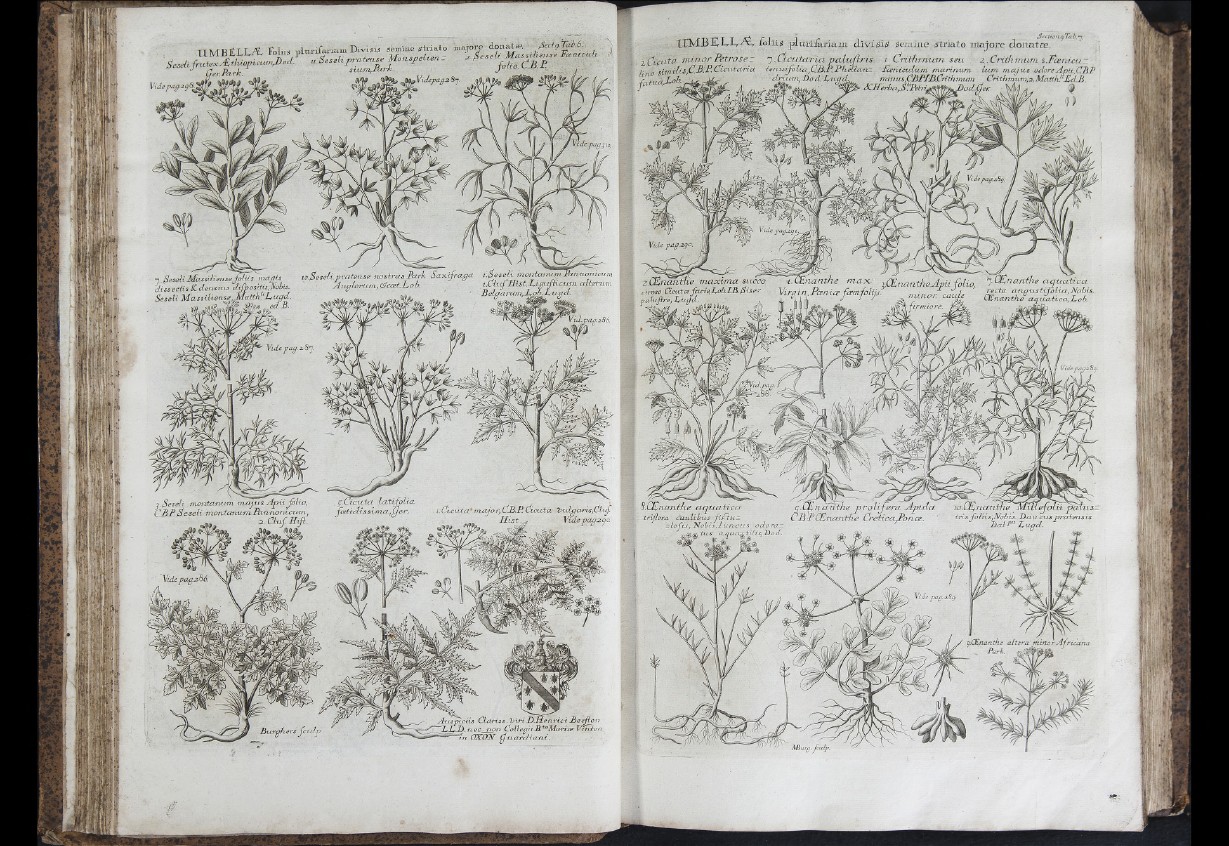 UMBELLÆ foliis plurifariam Divisis semine striato majore donatæ. Sect 9 Tab 6.
Seseli frutex Æthiopicum, Dod.
Ger. Park.
11 Seseli pratense Monspelien=
sium, Park.
2 Seseli Massiliense Fœniculi
folio C.B.P.
Vide pag 287
Vide pag 312
7. Seseli Massiliense foliis magis
dissectis & donacis dispositu, Nobis.
Seseli Massiliense, Matth. Lugd.
Dod. ed B.
10. Seseli pratense nostras Park Saxifraga
Anglorum, Gent. Lob.
1. Seseli montanum Pannonicum
1. Clus Hist. Ligusticum alterum
Belgarum, Lob. Lugd.
Vide pag 287
Vid. pag 286
3 Seseli montanum majus Apii folio,
C.B.P. Seseli montanum Pannonicum,
2. Clus Hist.
5 Cicuta latifolia
fœtidissima, Ger.
1. Cicuta major, C.B.P. Cicuta vulgaris, Clus
Hist. Vide pag 20
Vide pag 286
Burghers sculp.
Auspiciis Clariss. viri D. Henrici Beeston
LL.D. nec non Collegii B. Mariæ Winton
in OXON Guardiani.
Sectio 9 Tab 7
UMBELLÆ, foliis plurifariam divisis semine striato majore donatæ.
2 Cicuta minor Petrose=
lino similis, C.B.P. Cicutaria
fatua, Lob.
7. Cicutaria palustris
tenuifolia, C.B.P. Phellan=
drium, Dod. Lugd.
1 Crithmum seu
Fœniculum marinum
minus, C.B.P. I.B. Crithmum
& Herba, S. Petri Dod. Ger
2. Crithmum 2. Fœnicu=
lum majus odore Apii, C.B.P.
Crithmum, 2. Matth. Ed. B.
Vide pag. 290.
Vide pag. 291.
Vide pag. 289.
2 Œnanthe maxima succo
viroso Cicutæ facie, Lob. I.B. Sium
palustre, Lugd
1. Œnanthe max.
Virgin. Pæoniæ fœm. foliis
3 Œnanthe Apii folio,
minor caule
firmiore
7. Œnanthe aquatica
recta angustifolia, Nobis.
Œnanthe aquatica, Lob.
Vide pag.
Vide pag 289
8. Œnanthe aquatica
triflora caulibus fistu=
losis, Nobis, Juncus odora=
tus aquatilis, Dod.
9. Œnanthe prolifera Apula
C.B.P. Œnanthe Cretica, Ponæ.
10. Œnanthe Millefolii palus=
tris foliis, Nobis. Daucus pratensis
Lugd.
Vide pag. 289
5. Œnanthe altera minor Africana
Park.
MBurg. sculp.